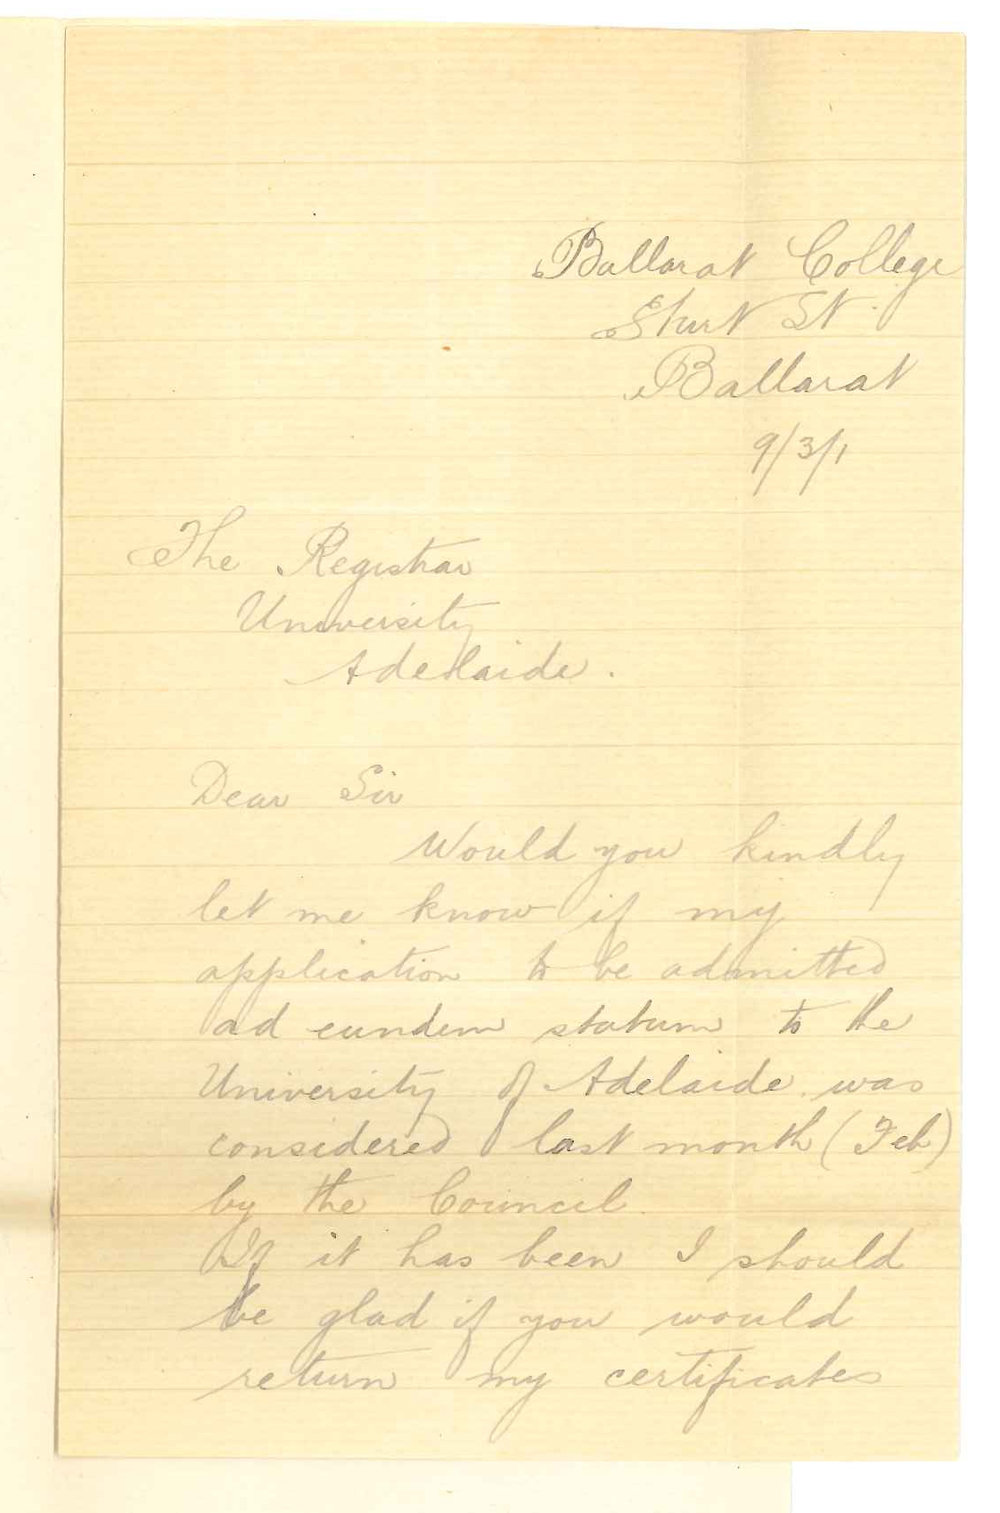 Ballarat College
Sturt St.
Ballarat
9/3/1
The Registrar
University
Adelaide.
Dear Sir
Would you kindly
let me know if my
application to be admitted
ad eundem statum to the
University of Adelaide was
considered last month (Feb)
by the Council.
If it has been I should
be glad if you would
return my certificates